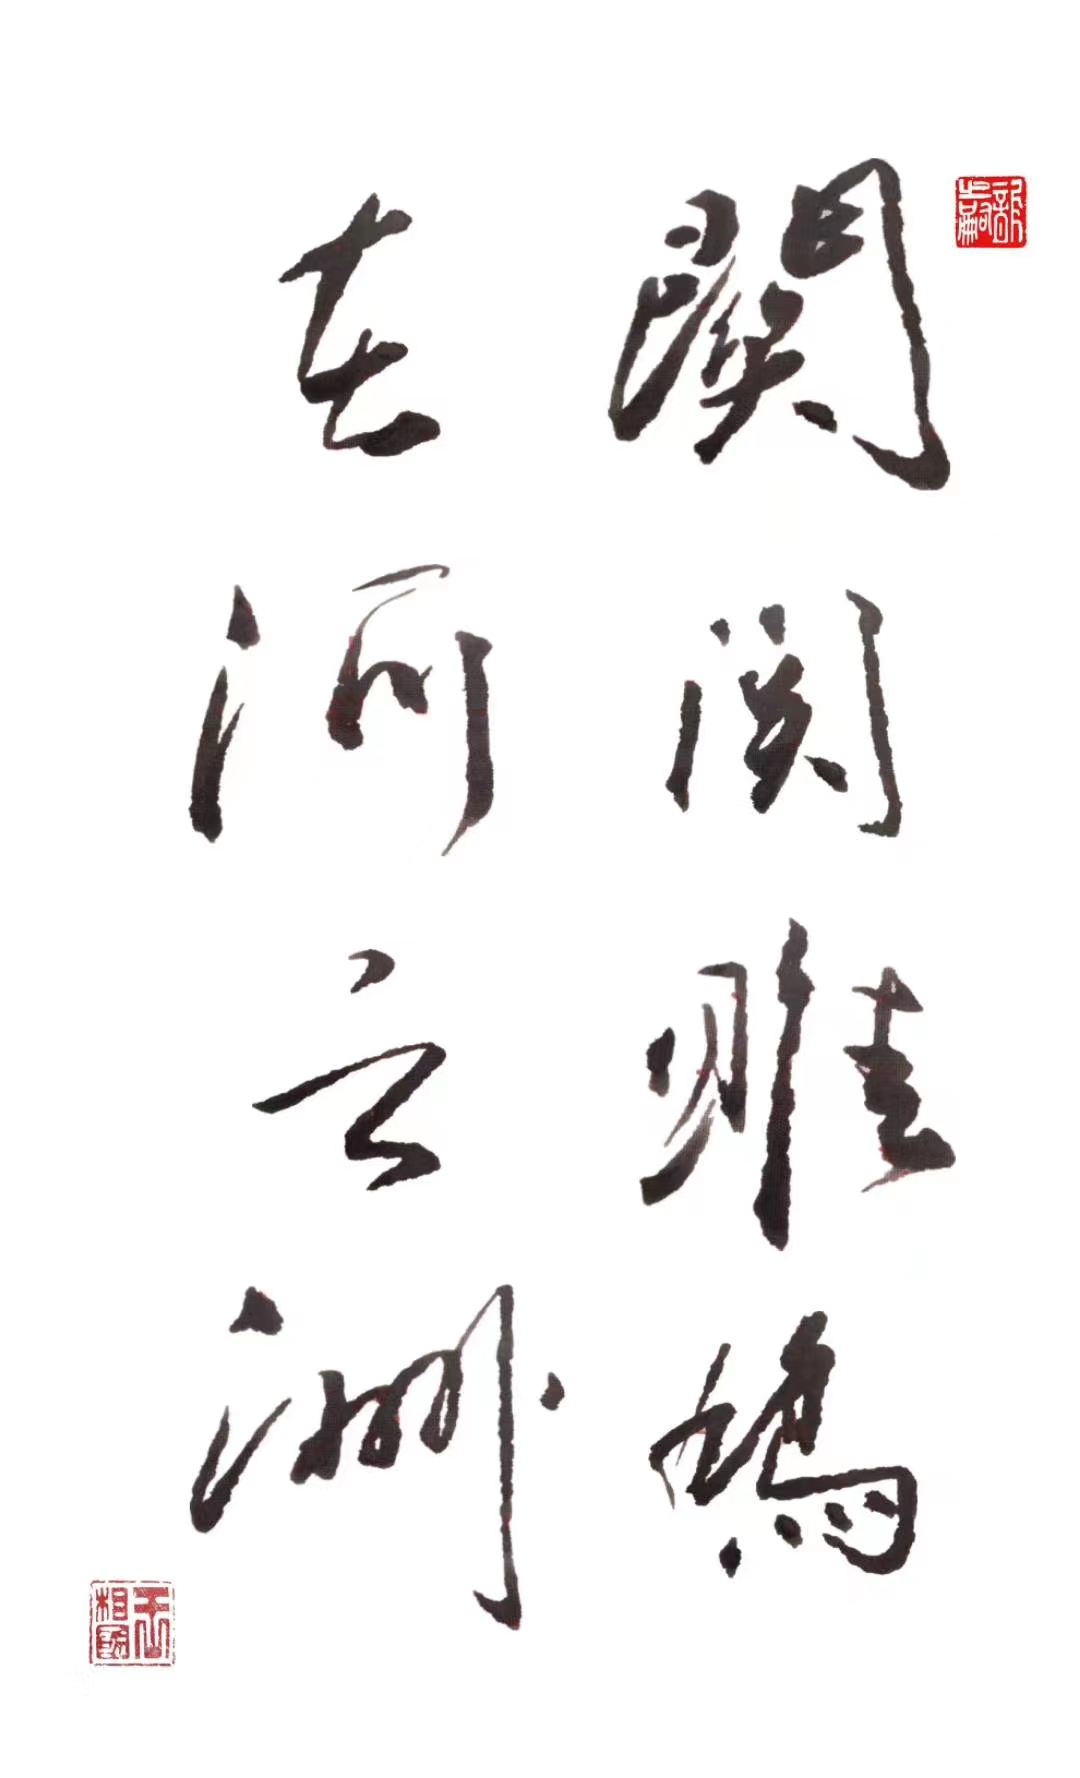 關關雎鳩
在河之洲